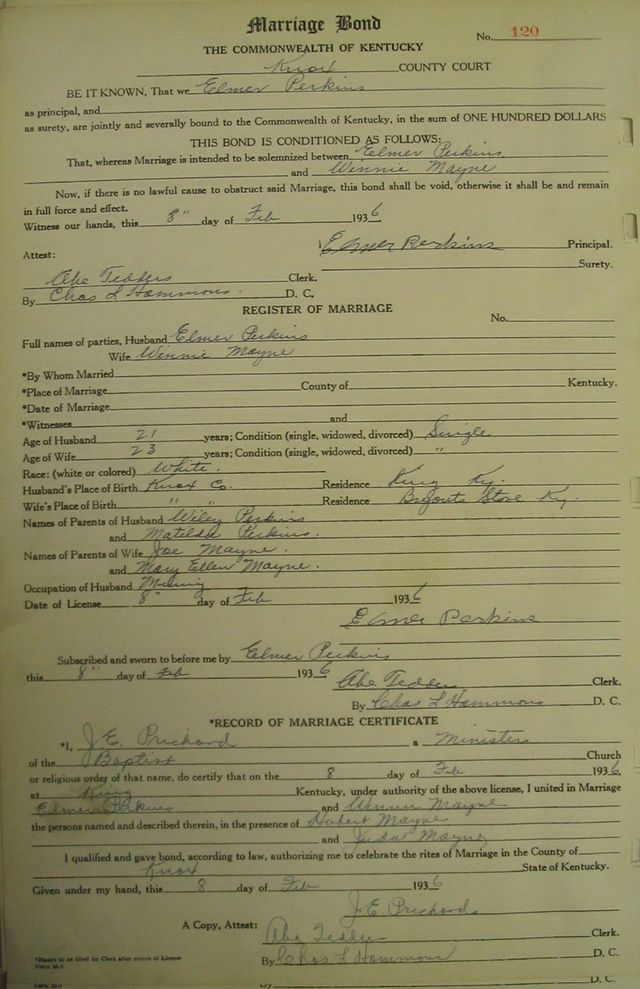 Marriage Bond
No. 120
THE COMMONWEALTH OF KENTUCKY
Knox COUNTY COURT
BE IT KNOWN, That we Elmer Perkins
as principal, and
as surety, are jointly and severally bound to the Commonwealth of Kentucky, in the sum of ONE HUNDRED DOLLARS
THIS BOND IS CONDITIONED AS FOLLOWS:
That, whereas Marriage is intended to be solemnized between Elmer Perkins
and Winnie Mayne
Now, if there is no lawful cause to obstruct said Marriage, this bond shall be void, otherwise it shall be and remain
in full force and effect.
Witness our hands, this 8" day of Feb 1936
Elmer Perkins Principal.
Attest:
Surety.
Abe Tedders Clerk.
By Chas L Hammons. D. C.
REGISTER OF MARRIAGE
No.
Full names of parties, Husband Elmer Perkins
Wife Winnie Mayne
*By Whom Married
*Place of Marriage County of Kentucky.
*Date of Marriage
*Witnesses and
Age of Husband 21 years; Condition (single, widowed, divorced) Single
Age of Wife 23 years; Condition (single, widowed, divorced) "
Race: (white or colored) White.
Husband's Place of Birth Knox Co. Residence King Ky.
Wife's Place of Birth " " Residence Store Ky.
Names of Parents of Husband Wiley Perkins
and Matilda Perkins.
Names of Parents of Wife Joe Mayne.
and Mary Ellen Mayne.
Occupation of Husband Mining
Date of License 8" day of Feb 1936
Elmer Perkins
Subscribed and sworn to before me by Elmer Perkins
this 8" day of Feb 1936
Abe Tedders Clerk.
By Chas L Hammons D. C.
*RECORD OF MARRIAGE CERTIFICATE
*I, J. E. Prichard a Minister
of the Baptist Church
or religious order of that name, do certify that on the 8 day of Feb 1936
at King Kentucky, under authority of the above license, I united in Marriage
Elmer Perkins and Winnie Mayne
the persons named and described therein, in the presence of Hobert Mayne
and Mayne
I qualified and gave bond, according to law, authorizing me to celebrate the rites of Marriage in the County of
Knox State of Kentucky.
Given under my hand, this 8 day of Feb 1936
J. E. Prichard
A Copy, Attest: Abe Tedders Clerk.
By Chas L Hammons D. C.
*Blanks to be filled by Clerk after return of License
D. C.